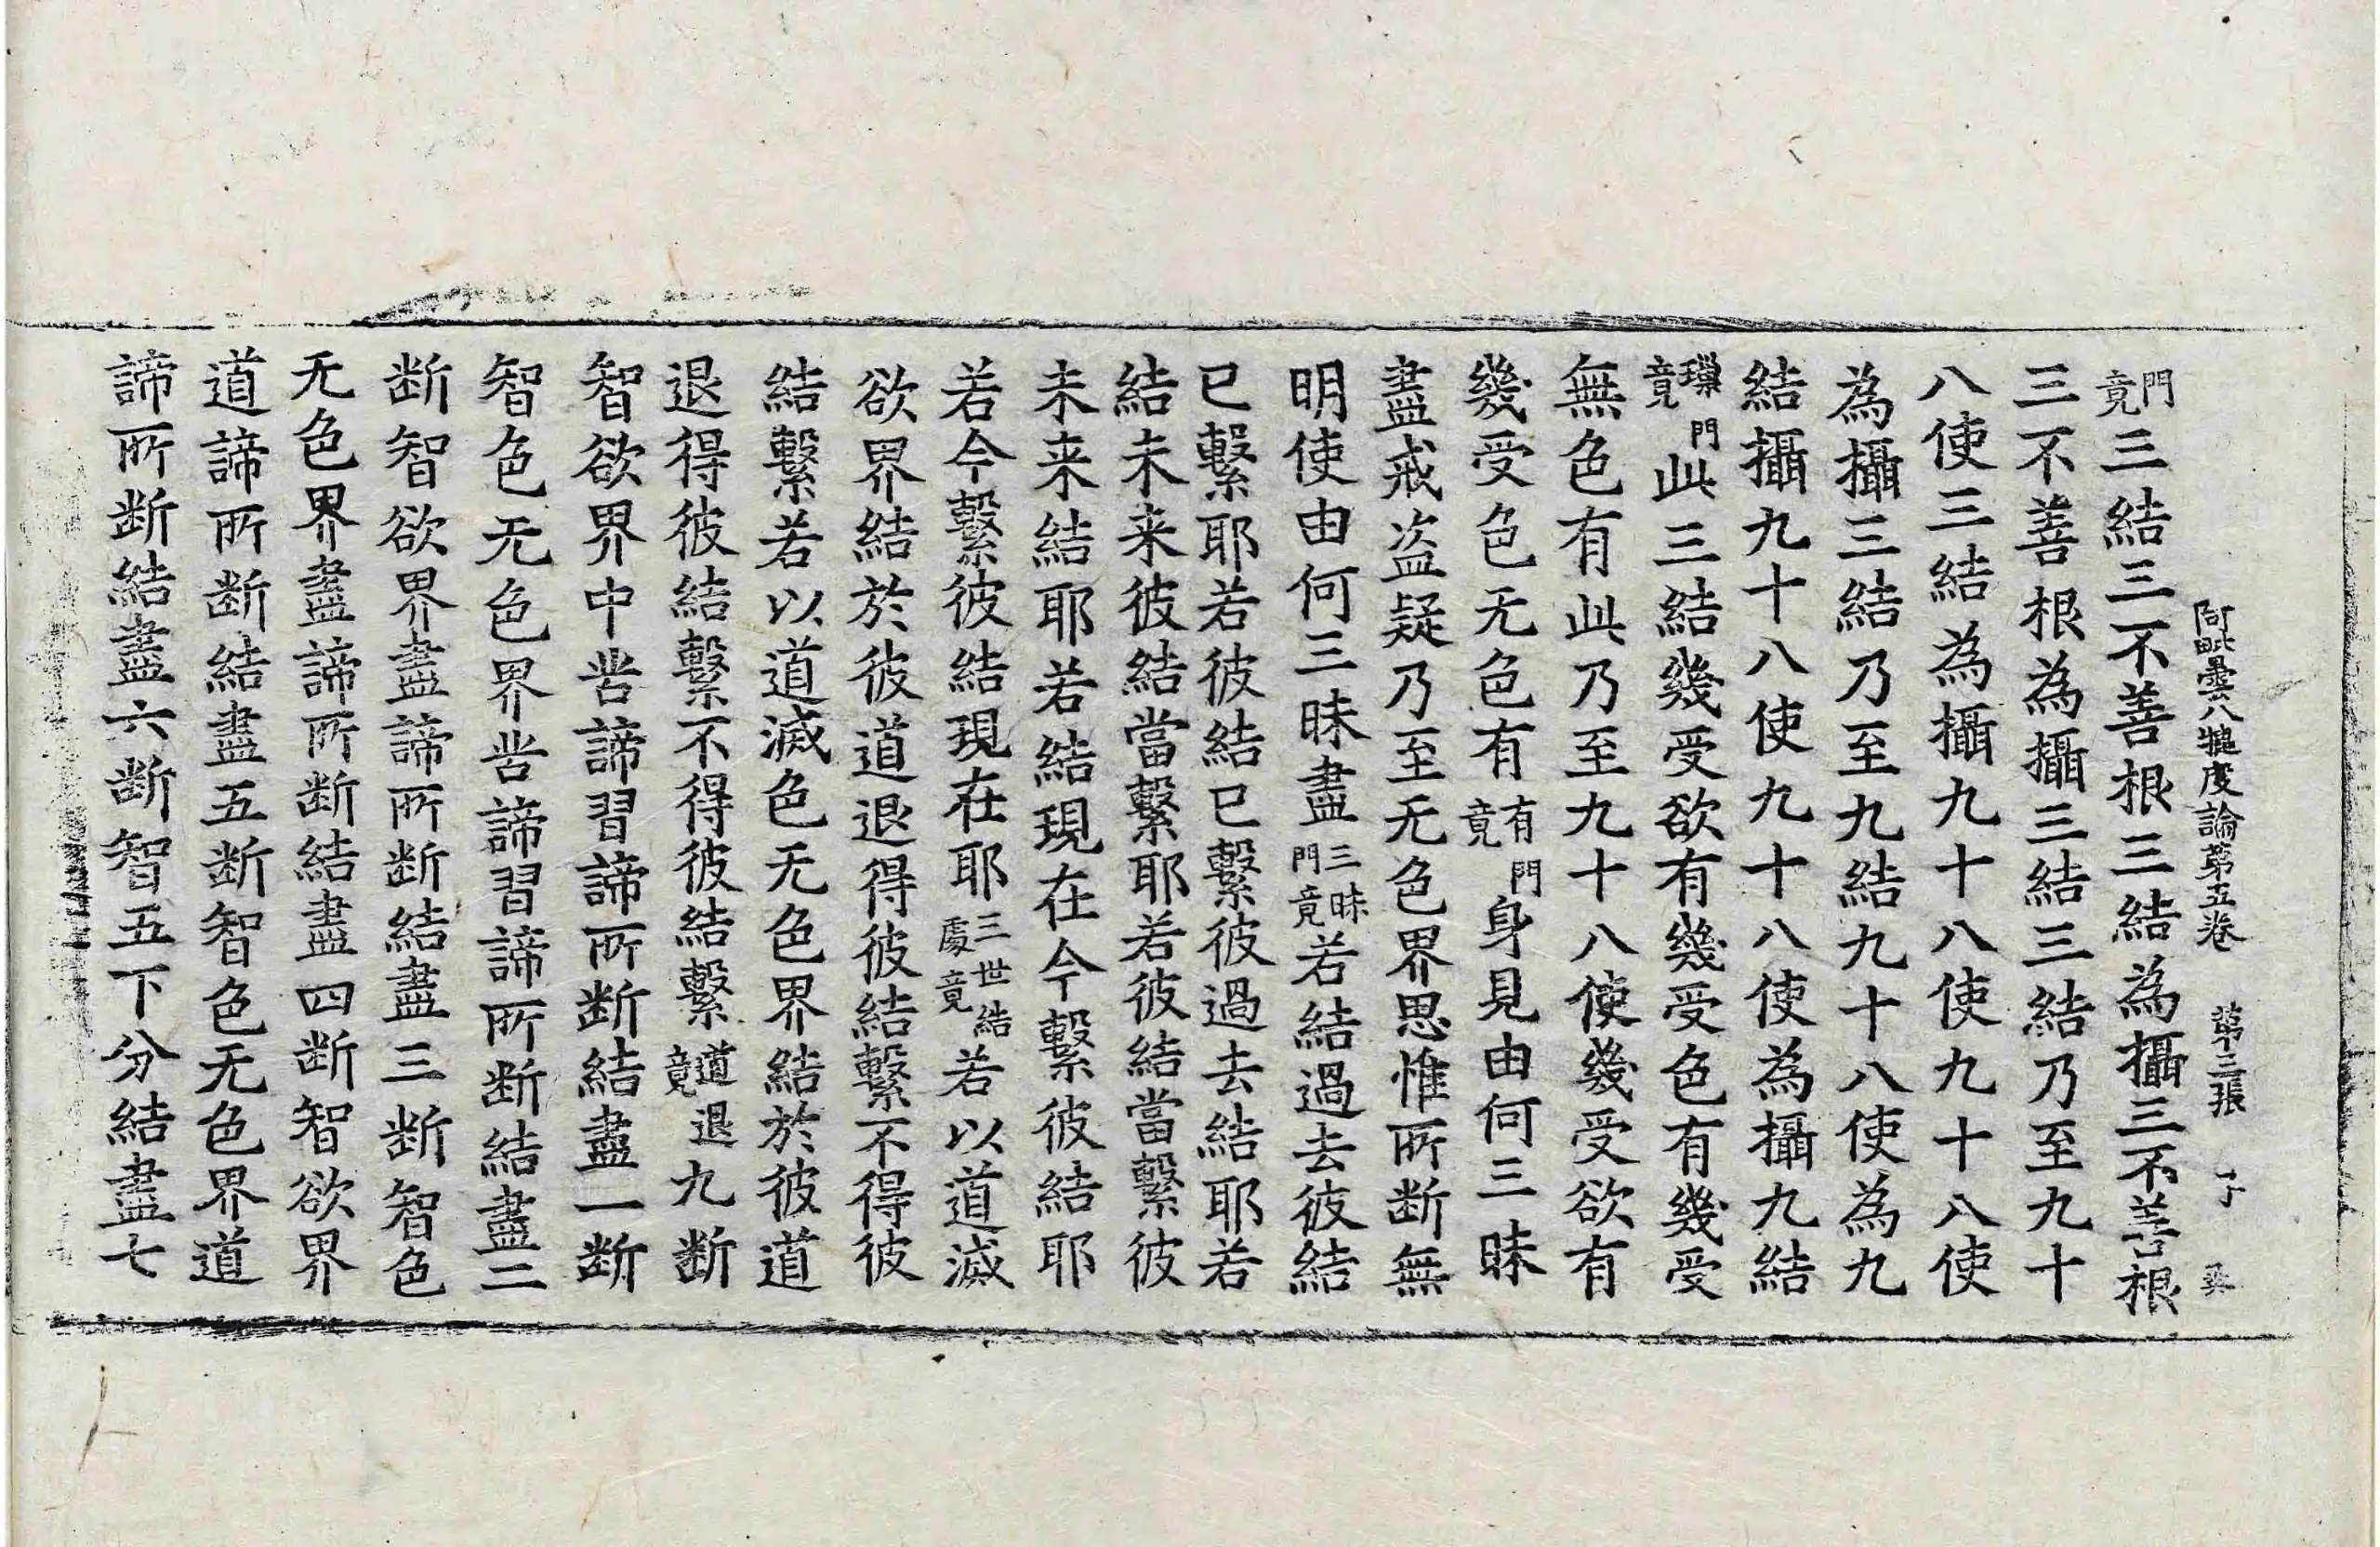 阿毗曇八犍度論第五卷 第三張 子
門竟三結三不善根三結為攝三不善根
三不善根為攝三結三結乃至九十
八使三結為攝九十八使九十八使
為攝三結乃至九結九十八使為九
結攝九十八使九十八使為攝九結
門竟此三結幾受欲有幾受色有幾受
無色有此乃至九十八使幾受欲有
幾受色无色有有門竟身見由何三昧
盡戒盗疑乃至无色界思惟所断無
明使由何三昧盡三昧門竟若結過去彼結
已繫耶若彼結已繫彼過去結耶若
結未来彼結當繫耶若彼結當繫彼
未来結耶若結現在今繫彼結耶
若今繫彼結現在耶三世結處竟若以道滅
欲界結於彼道退得彼結繫不得彼
結繫若以道滅色无色界結於彼道
退得彼結繫不得彼結繫道退竟九断
智欲界中苦諦習諦所断結盡一断
智色无色界苦諦習諦所断結盡二
断智欲界盡諦所断結盡三断智色
无色界盡諦所断結盡四断智欲界
道諦所断結盡五断智色无色界道
諦所断結盡六断智五下分結盡七